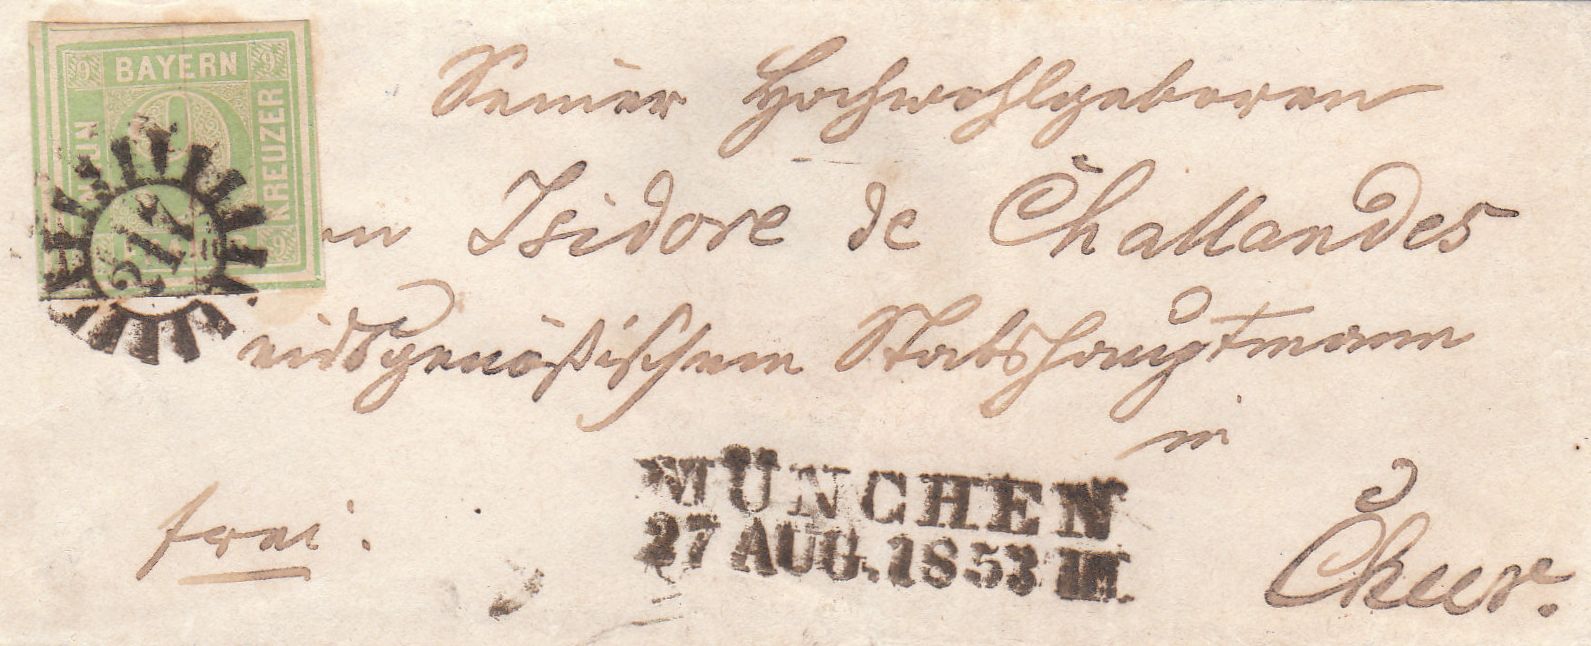 9 BAYERN 9
NEUN
9
KREUZER
9
217
Seiner Hochwohlgeboren
Isidore de Challandes
eidsgenößischem Stabshauptmann
in
Chur.
frei.
MÜNCHEN
27 AUG. 1853 III